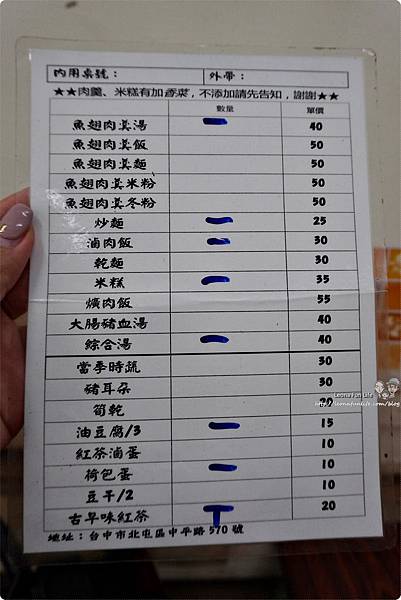 內用桌號： 外帶：
★★肉羹、米糕有加香菜，不添加請先告知，謝謝★★
數量 單價
魚翅肉羹湯 40
魚翅肉羹飯 50
魚翅肉羹麵 50
魚翅肉羹米粉 50
魚翅肉羹冬粉 50
炒麵 25
滷肉飯 30
乾麵 30
米糕 35
爌肉飯 55
大腸豬血湯 40
綜合湯 40
當季時蔬 30
豬耳朵 30
筍乾 20
油豆腐/3 15
紅茶滷蛋 10
荷包蛋 10
豆干/2 10
古早味紅茶 20
地址：台中市北屯區中平路570號
Leona Fun Life
http://leonafunlife.com/blog